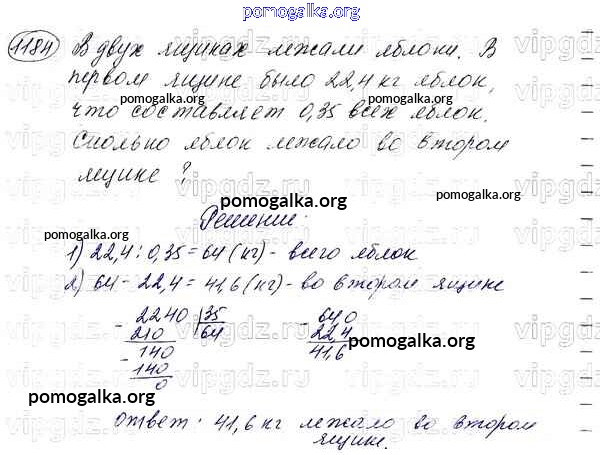 pomogalka.org
1184 В двух ящиках лежали яблоки. В
первом ящике было 22,4 кг яблок,
pomogalka.org pomogalka.org
что составляет 0,35 всех яблок.
Сколько яблок лежало во втором
ящике?
pomogalka.org
pomogalka.org
Решение:
pomogalka.org
1) 22,4 : 0,35 = 64 (кг) - всего яблок
pomogalka.org
2) 64 - 22,4 = 41,6 (кг) - во втором ящике
- 2240 35 - 640
210 64 224
- 140 41,6
140
0
pomogalka.org
pomogalka.org
Ответ: 41,6 кг лежало во втором
ящике.